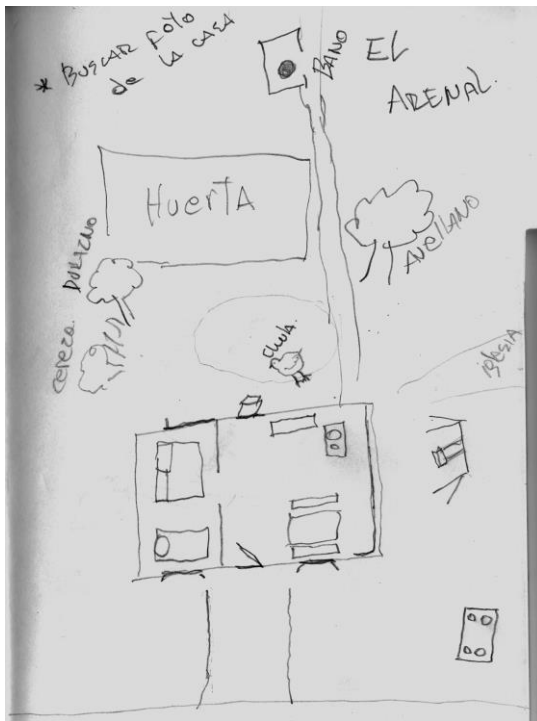 * BUSCAR FOTO
de LA CASA
BAÑO
EL
ARENAL.
HuerTA
AVellANO
DURAZNO
cereza
iglesia